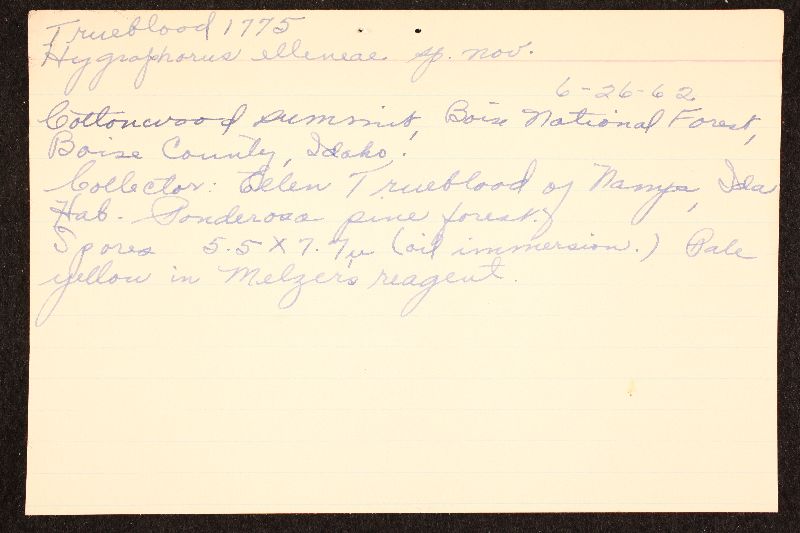 Trueblood 1775
Hygrophorus elleneae sp. nov.
6-26-62
Cottonwood summit, Boise National Forest,
Boise County, Idaho.
Collector: Ellen Trueblood of Nampa, Ida
Hab. Ponderosa pine forest.
Spores 5.5 X 7.7µ (oil immersion.) Pale
yellow in Melzer's reagent.